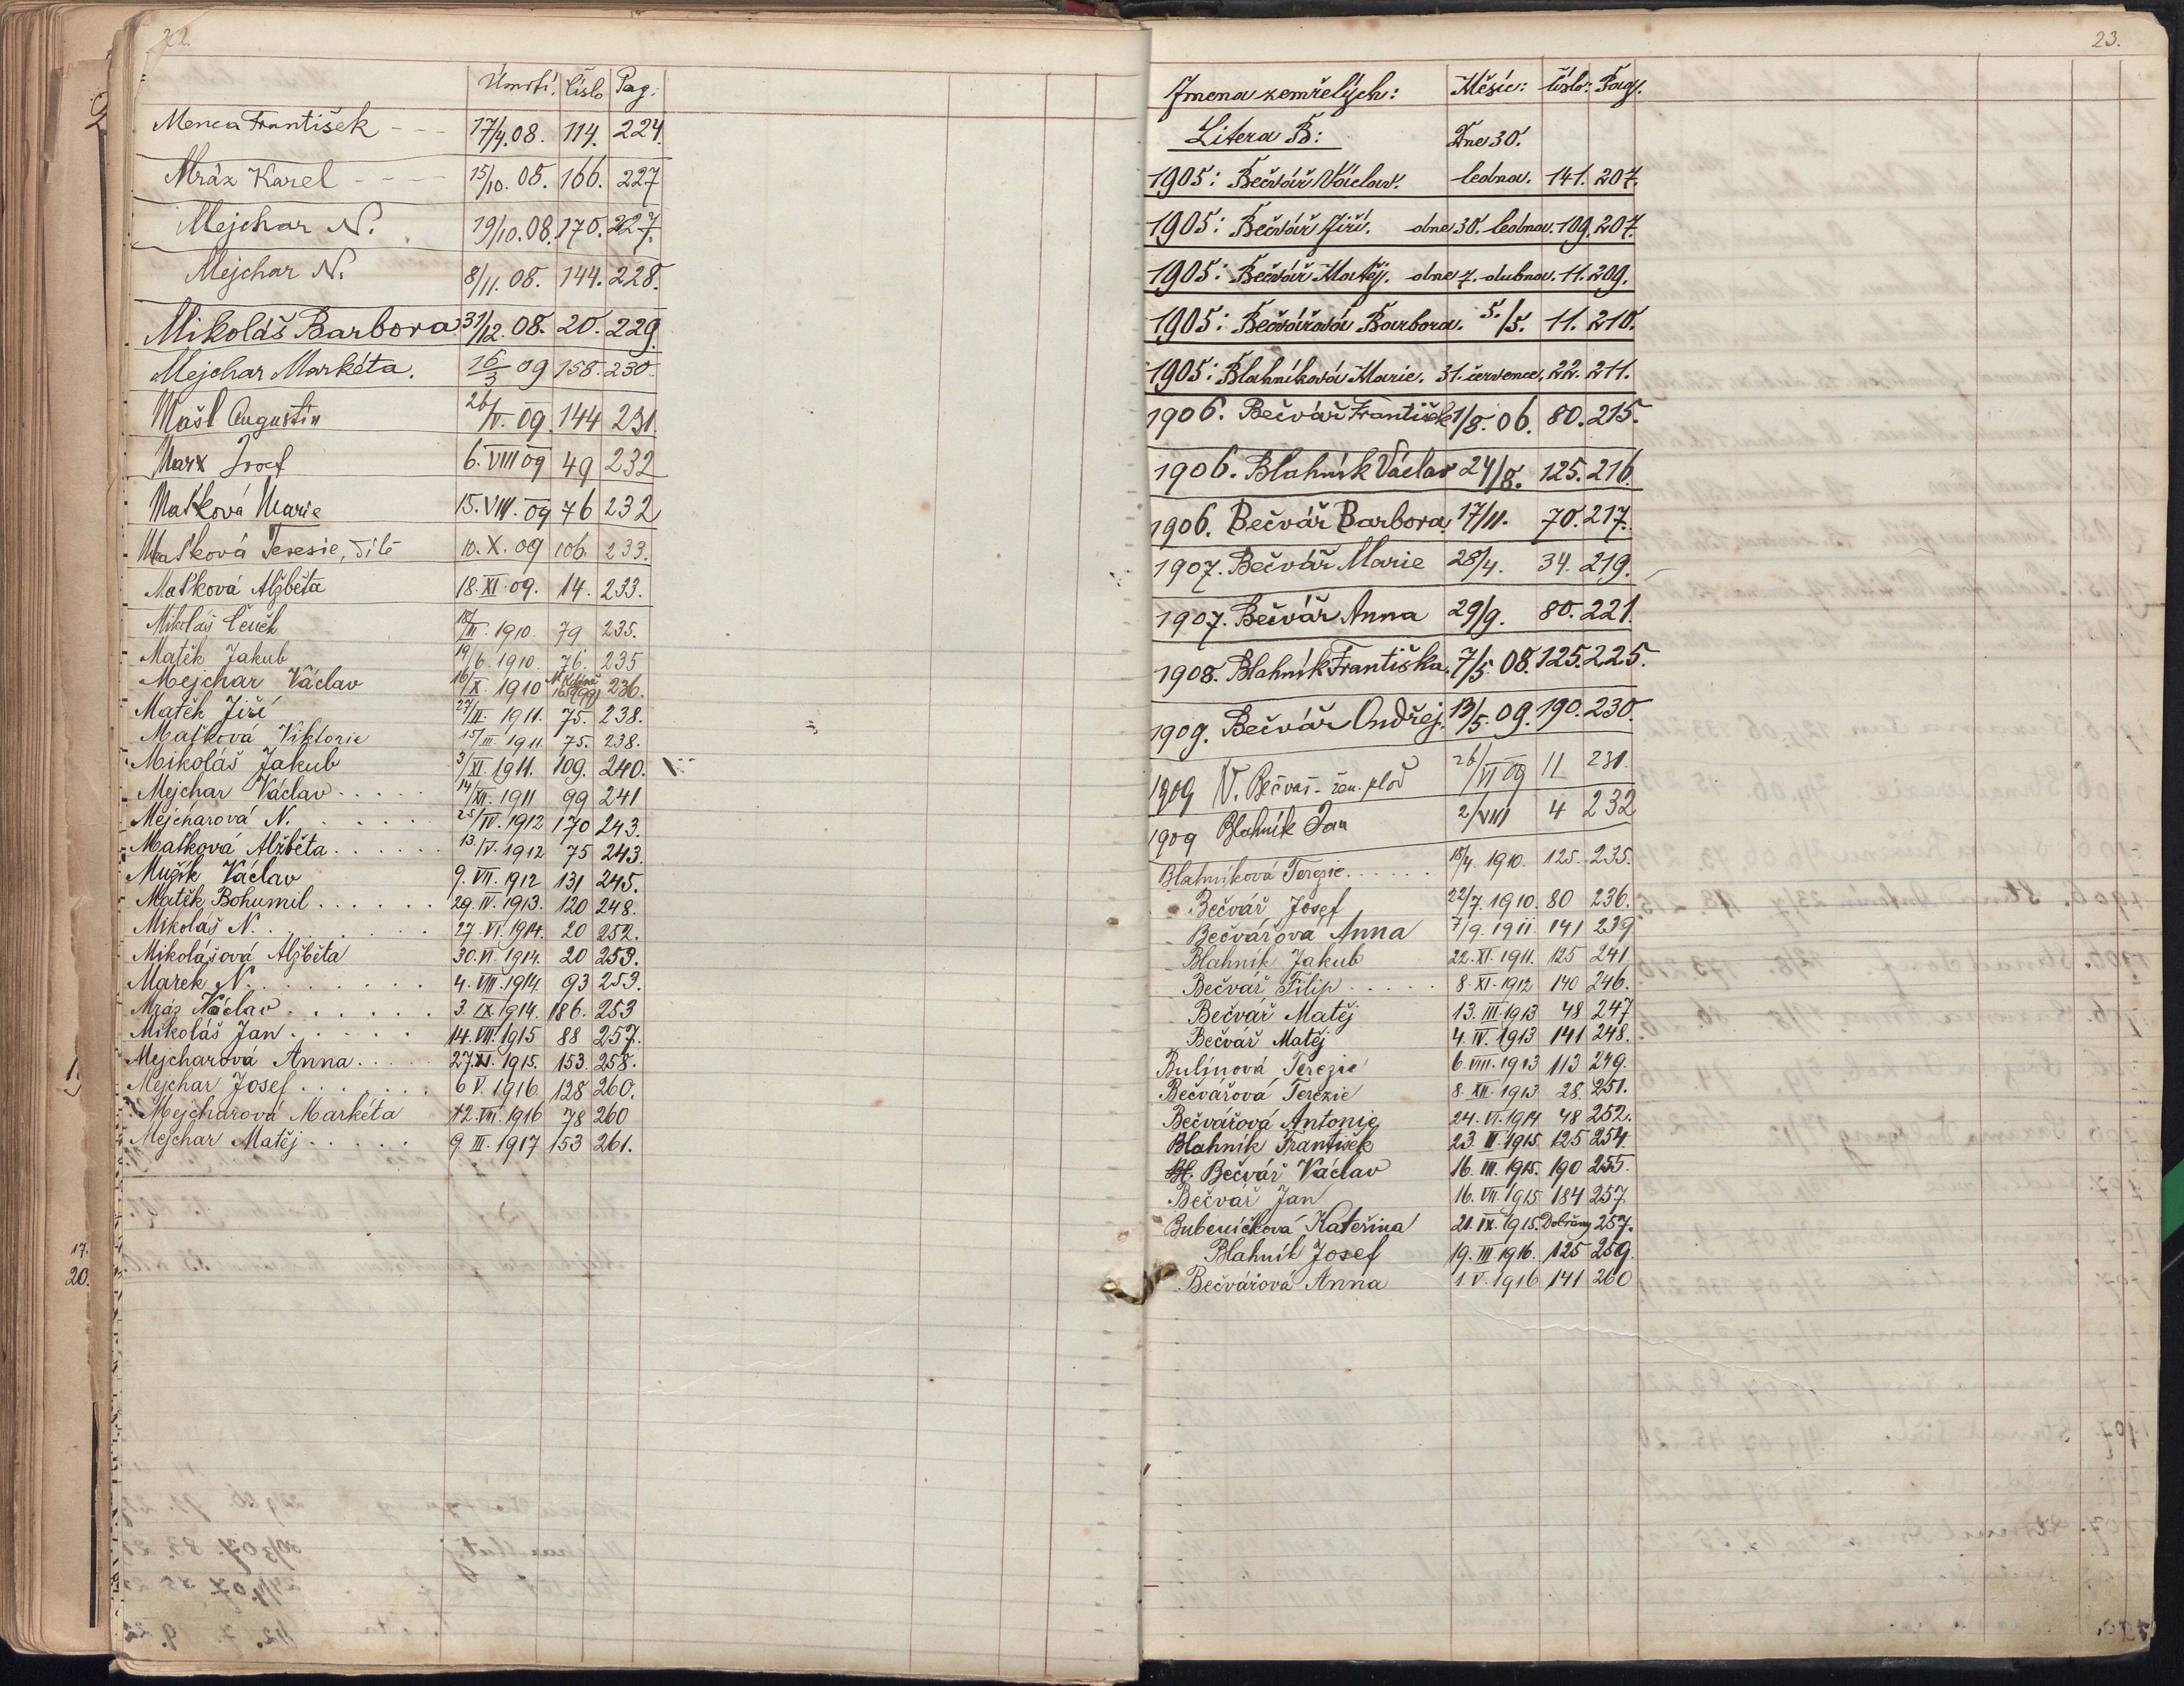 22.
Úmrtí. Číslo Pag.
Menca František - - - 17/4.08. 114. 224.
Mráz Karel - - - - 15/10.08. 166. 227
Mejchar N. 19/10.08. 170. 227.
Mejchar N. 8/11.08. 144. 228.
Mikoláš Barbora 31/12.08. 20. 229.
Mejchar Markéta. 16/3 09 158. 230.
Mašl Augustin 26/IV. 09. 144 231.
Marx Josef 6. VIII 09 49 232
Maťková Marie 15. VIII. 09 76 232
Maťková Teresie, dítě 10. X. 09 106. 233.
Maťková Alžběta 18. XI. 09. 14. 233.
Mikoláš Čeněk 18/III. 1910. 79 235.
Matěk Jakub 19/6. 1910. 76. 235
Mejchar Václav 16/X. 1910 236.
Matěk Jiří 27/III. 1911. 75. 238.
Maťková Viktorie 15/III. 1911. 75. 238.
Mikoláš Jakub 3/XI. 1911. 109. 240.
Mejchar Václav . . . . . 14/XII. 1911 99 241
Mejcharová N. . . . . . 25/IV. 1912 170 243.
Maťková Alžběta . . . . . . 13./V. 1912 75 243.
Mužík Václav 9. VII. 1912 131 245.
Matěk Bohumil . . . . . . 29. IV. 1913. 120 248.
Mikoláš N. . . . . . . . 27. VI. 1914. 20 252.
Mikolášová Alžběta 30. VI. 1914. 20 253.
Marek N. . . . . . . . . 4. VIII. 1914. 93 253.
Mráz Václav . . . . . . 3. IX. 1914. 186. 253
Mikoláš Jan . . . . . . 14. VIII. 1915 88 257.
Mejcharová Anna . . . . 27. XI. 1915. 153. 258.
Mejchar Josef . . . . . . 6 V. 1916 128 260.
Mejcharová Markéta 12. VII. 1916 78 260
Mejchar Matěj . . . . . 9. III. 1917 153 261.
23.
Jmena zemřelých: Měsíc: číslo: Pag.
Litera B: Dne 30.
1905: Bečvář Václav. ledna. 141. 207.
1905: Bečvář Jiří. dne 30. ledna. 109. 207.
1905: Bečvář Matěj. dne 7. dubna. 11. 209.
1905: Bečvářová Barbora. 5./5. 11. 210.
1905: Blahníková Marie. 31. července, 22. 211.
1906. Bečvář František 1/8. 06. 80. 215.
1906. Blahník Václav 24/8. 125. 216.
1906. Bečvář Barbora 17/11. 70. 217.
1907. Bečvář Marie 28/4. 34. 219.
1907. Bečvář Anna 29/9. 80. 221.
1908. Blahník Františka. 7/5. 08. 125. 225.
1909. Bečvář Ondřej. 13/5. 09. 190. 230.
1909 N. Bečvář - žen. plod 26/VI 09 11 231.
1909 Blahník Jan 2/VIII 4 232
Blahníková Terezie . . . . . . 18/4. 1910. 125. 235.
Bečvář Josef 22/7. 1910. 80 236.
Bečvářova Anna 7/9. 1911. 141 239
Blahník Jakub 22. XI. 1911. 125 241.
Bečvář Filip . . . . . 8. XI. 1912 140 246.
Bečvář Matěj 13. III. 1913 48 247
Bečvář Matěj 4. IV. 1913 141 248.
Bulínová Terezie 6. VIII. 1913 113 249.
Bečvářová Terezie 8. XII. 1913 28. 251.
Bečvářová Antonie 24. VI. 1914 48 252.
Blahník František 23. II. 1915. 125 254.
Bl. Bečvář Václav 16. III. 1915. 190 255.
Bečvář Jan 16. VII. 1915. 184 257
Bubeníčková Kateřina 21. IX. 1915. Dobřany 257.
Blahník Josef 19. III. 1916. 125 259.
Bečvářová Anna 1. V. 1916 141 260